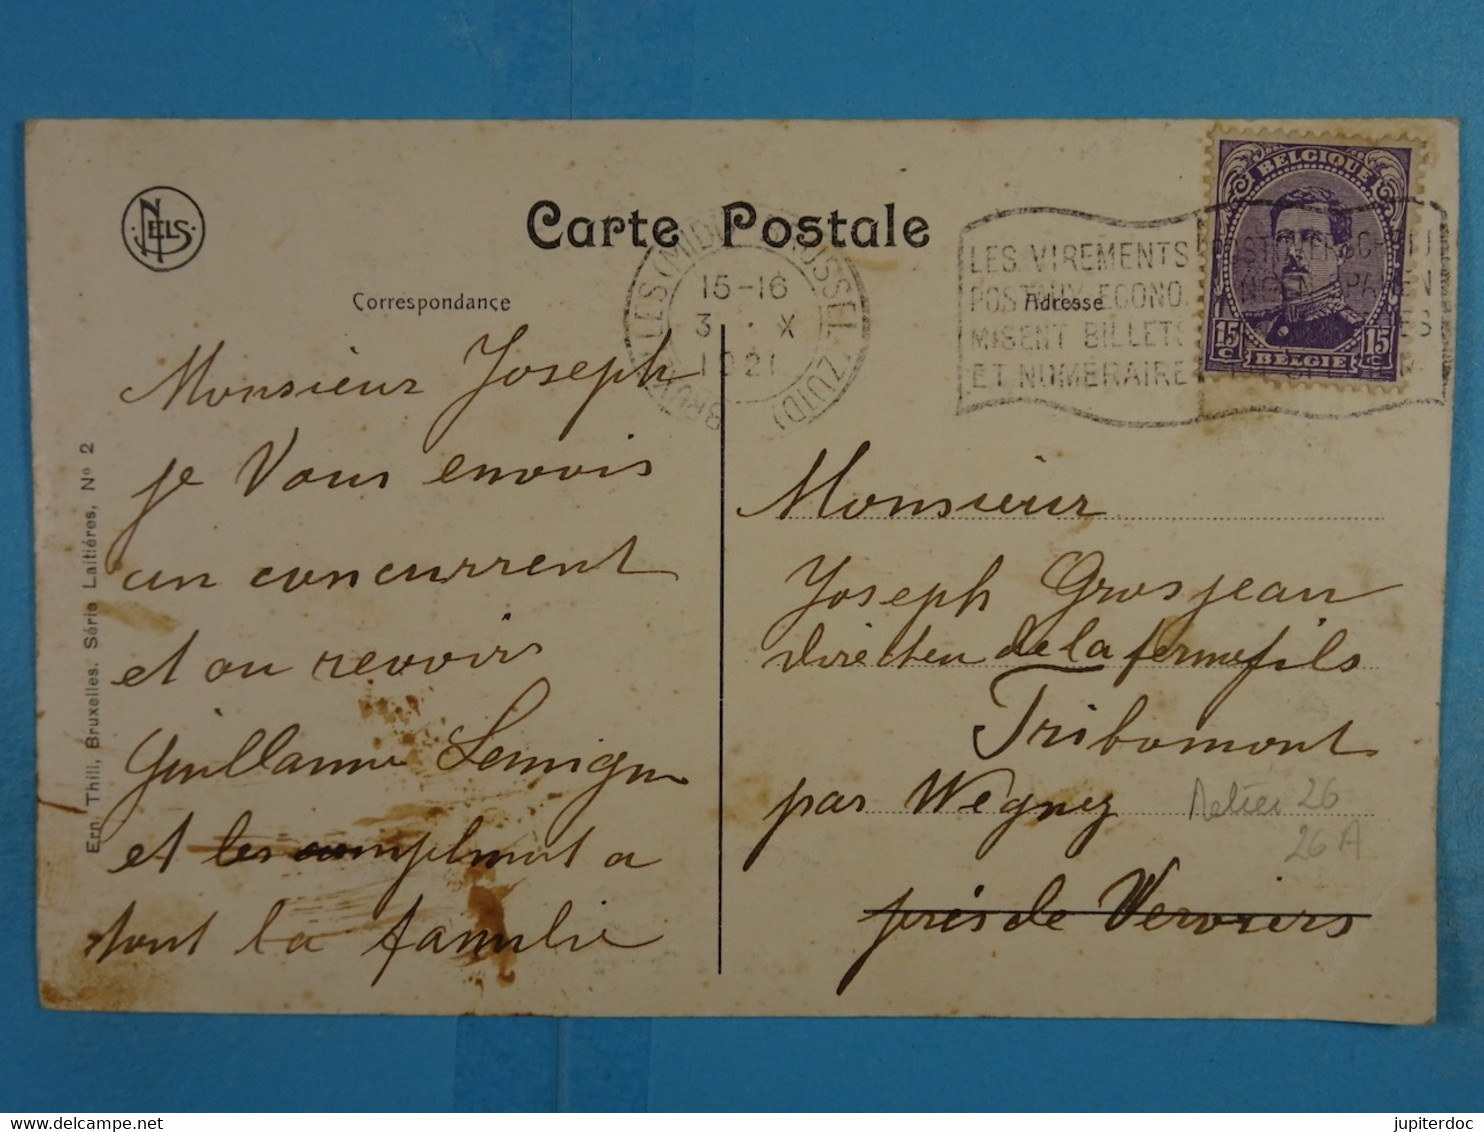 NELS
Carte Postale
Correspondance
Adresse
BRUXELLES (MIDI) BRUSSEL (ZUID)
15-16
3 X
1921
LES VIREMENTS
POSTAUX ECONO.
MISENT BILLETS
ET NUMÉRAIRE
BELGIQUE
15c 15c
BELGIË
Monsieur Joseph
je Vous envois
un concurrent
et au revoir
Guillaume Lemign
et les complment a
tout la familie
Monsieur
Joseph Grosjean
directeu de la ferme fils
Tribomont
par Wegnez
près de Verviers
26
26 A
Ern. Thill, Bruxelles. Série Laitières, No 2
jupiterdoc